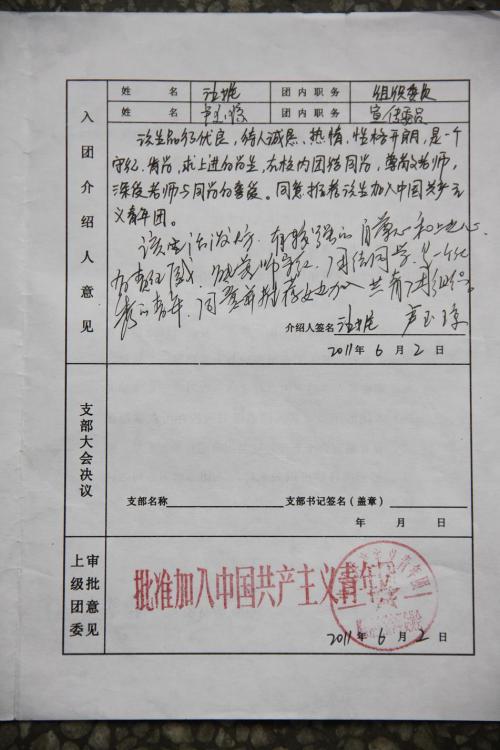 姓 名 团内职务 组织委员
姓 名 团内职务 宣传委员
入团介绍人意见
该生品行优良，待人诚恳、热情，性格开朗，是一个
守纪、肯学，求上进的学生，在校内团结同学，尊敬老师，
深受老师与同学的喜爱。同意推荐该生加入中国共产主
义青年团。
该生活泼大方，有较强的自尊心和上进心，
有责任感，团结同学，是一个优
秀的青年，同意并推荐她加入共青团组织。
介绍人签名
2011年 6 月 2 日
支部大会决议
支部名称 支部书记签名（盖章）
年 月 日
上级团委审批意见
批准加入中国共产主义青年团
2011年 6 月 2 日